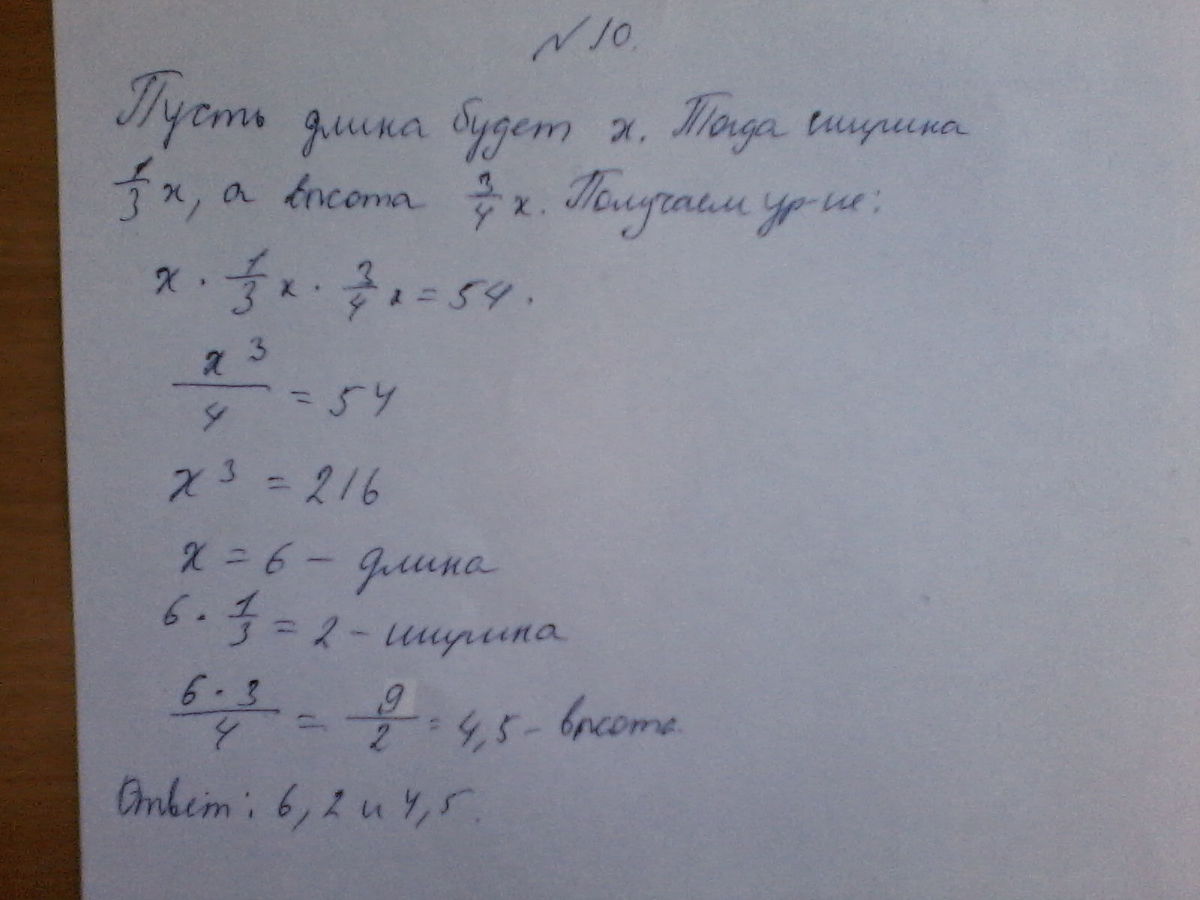 № 10.
Пусть длина будет x. Тогда ширина
1/3 x, а высота 3/4 x. Получаем ур-ие:
x · 1/3 x · 3/4 x = 54.
x³/4 = 54
x³ = 216
x = 6 – длина
6 · 1/3 = 2 – ширина
6 · 3/4 = 9/2 = 4,5 – высота.
Ответ: 6, 2 и 4,5.